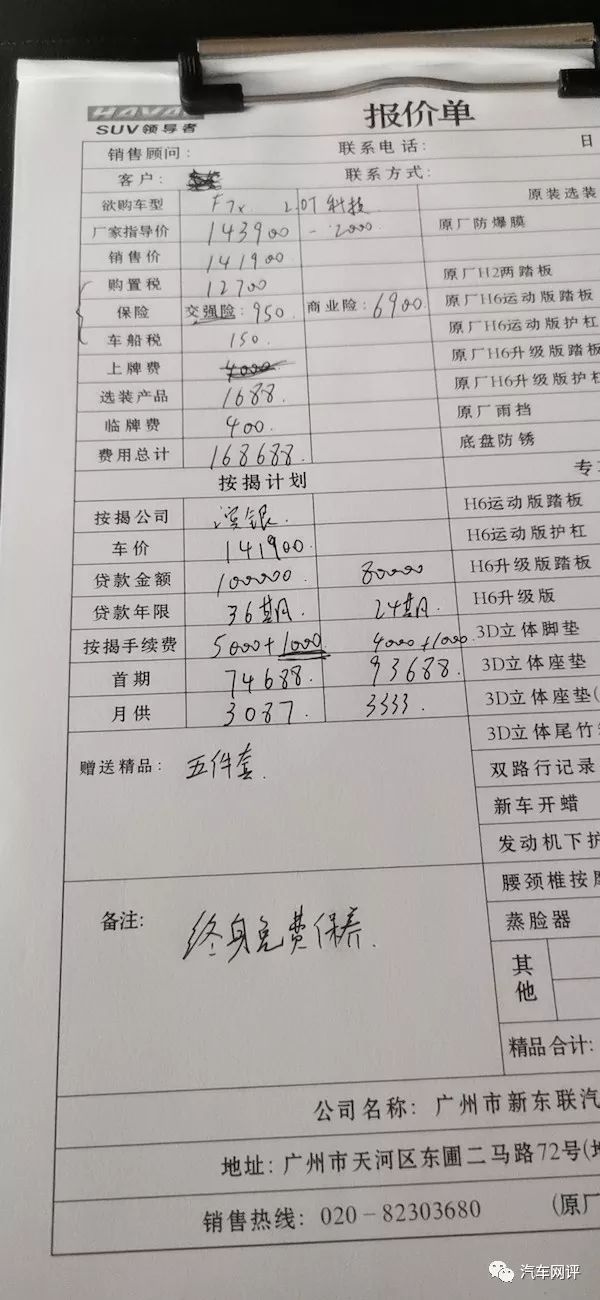 HAVAL
SUV领导者
报价单
销售顾问: 联系电话: 日
客户: 联系方式:
欲购车型 F7x 2.0T 科技 原装选装
厂家指导价 143900 -2000 原厂防爆膜
销售价 141900
购置税 12700 原厂H2两踏板
保险 交强险: 950. 商业险: 6900 原厂H6运动版踏板
车船税 150. 原厂H6运动版护杠
上牌费 4000 原厂H6升级版踏板
选装产品 1688. 原厂H6升级版护杠
临牌费 400. 原厂雨挡
费用总计 168688. 底盘防锈
按揭计划 专
按揭公司 深银. H6运动版踏板
车价 141900. H6运动版护杠
贷款金额 100000. 80000 H6升级版踏板
贷款年限 36期. 24期. H6升级版
按揭手续费 5000+1000 4000+1000. 3D立体脚垫
首期 74688. 93688. 3D立体座垫
月供 3087. 3333. 3D立体座垫(
3D立体尾
赠送精品: 五件套. 双路行记录
新车开蜡
发动机下护
腰颈椎按摩
备注: 终身免费保养. 蒸脸器
其他
精品合计:
公司名称: 广州市新东联汽
地址: 广州市天河区东圃二马路72号(
销售热线: 020-82303680 (原厂
汽车网评